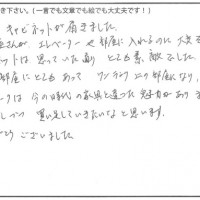 き下さい。(一言でも文章でも絵でも大丈夫です！)
キャビネットが届きました。
さんが エレベーター や 部屋に 入れるのに 大変
ネットは 思っていた通り とても素敵でした。
部屋にとてもあって ワンランク上の部屋になり
クは 今の時代の家具と違った魅力があり
しずつ 買い足していきたいなと思います。
ございました。